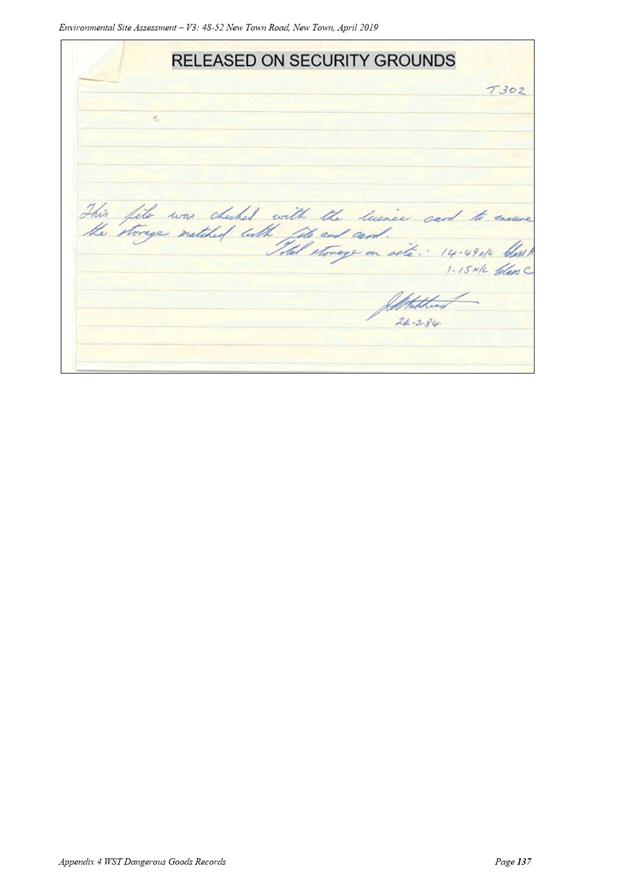 Environmental Site Assessment – V3: 48-52 New Town Road, New Town, April 2019
RELEASED ON SECURITY GROUNDS
T302
This file was checked with the licence card to ensure
the storage matched with file and card.
Total storage on site:- 14-49 k/l Class A
1-15 k/l Class C
24-2-84
Appendix 4 WST Dangerous Goods Records
Page 137